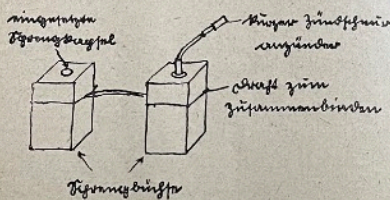 eingesetzte
Sprengkapsel
kurzer Zündschnur
anzünder
Draht zum
Zusammenbinden
Sprengbüchse